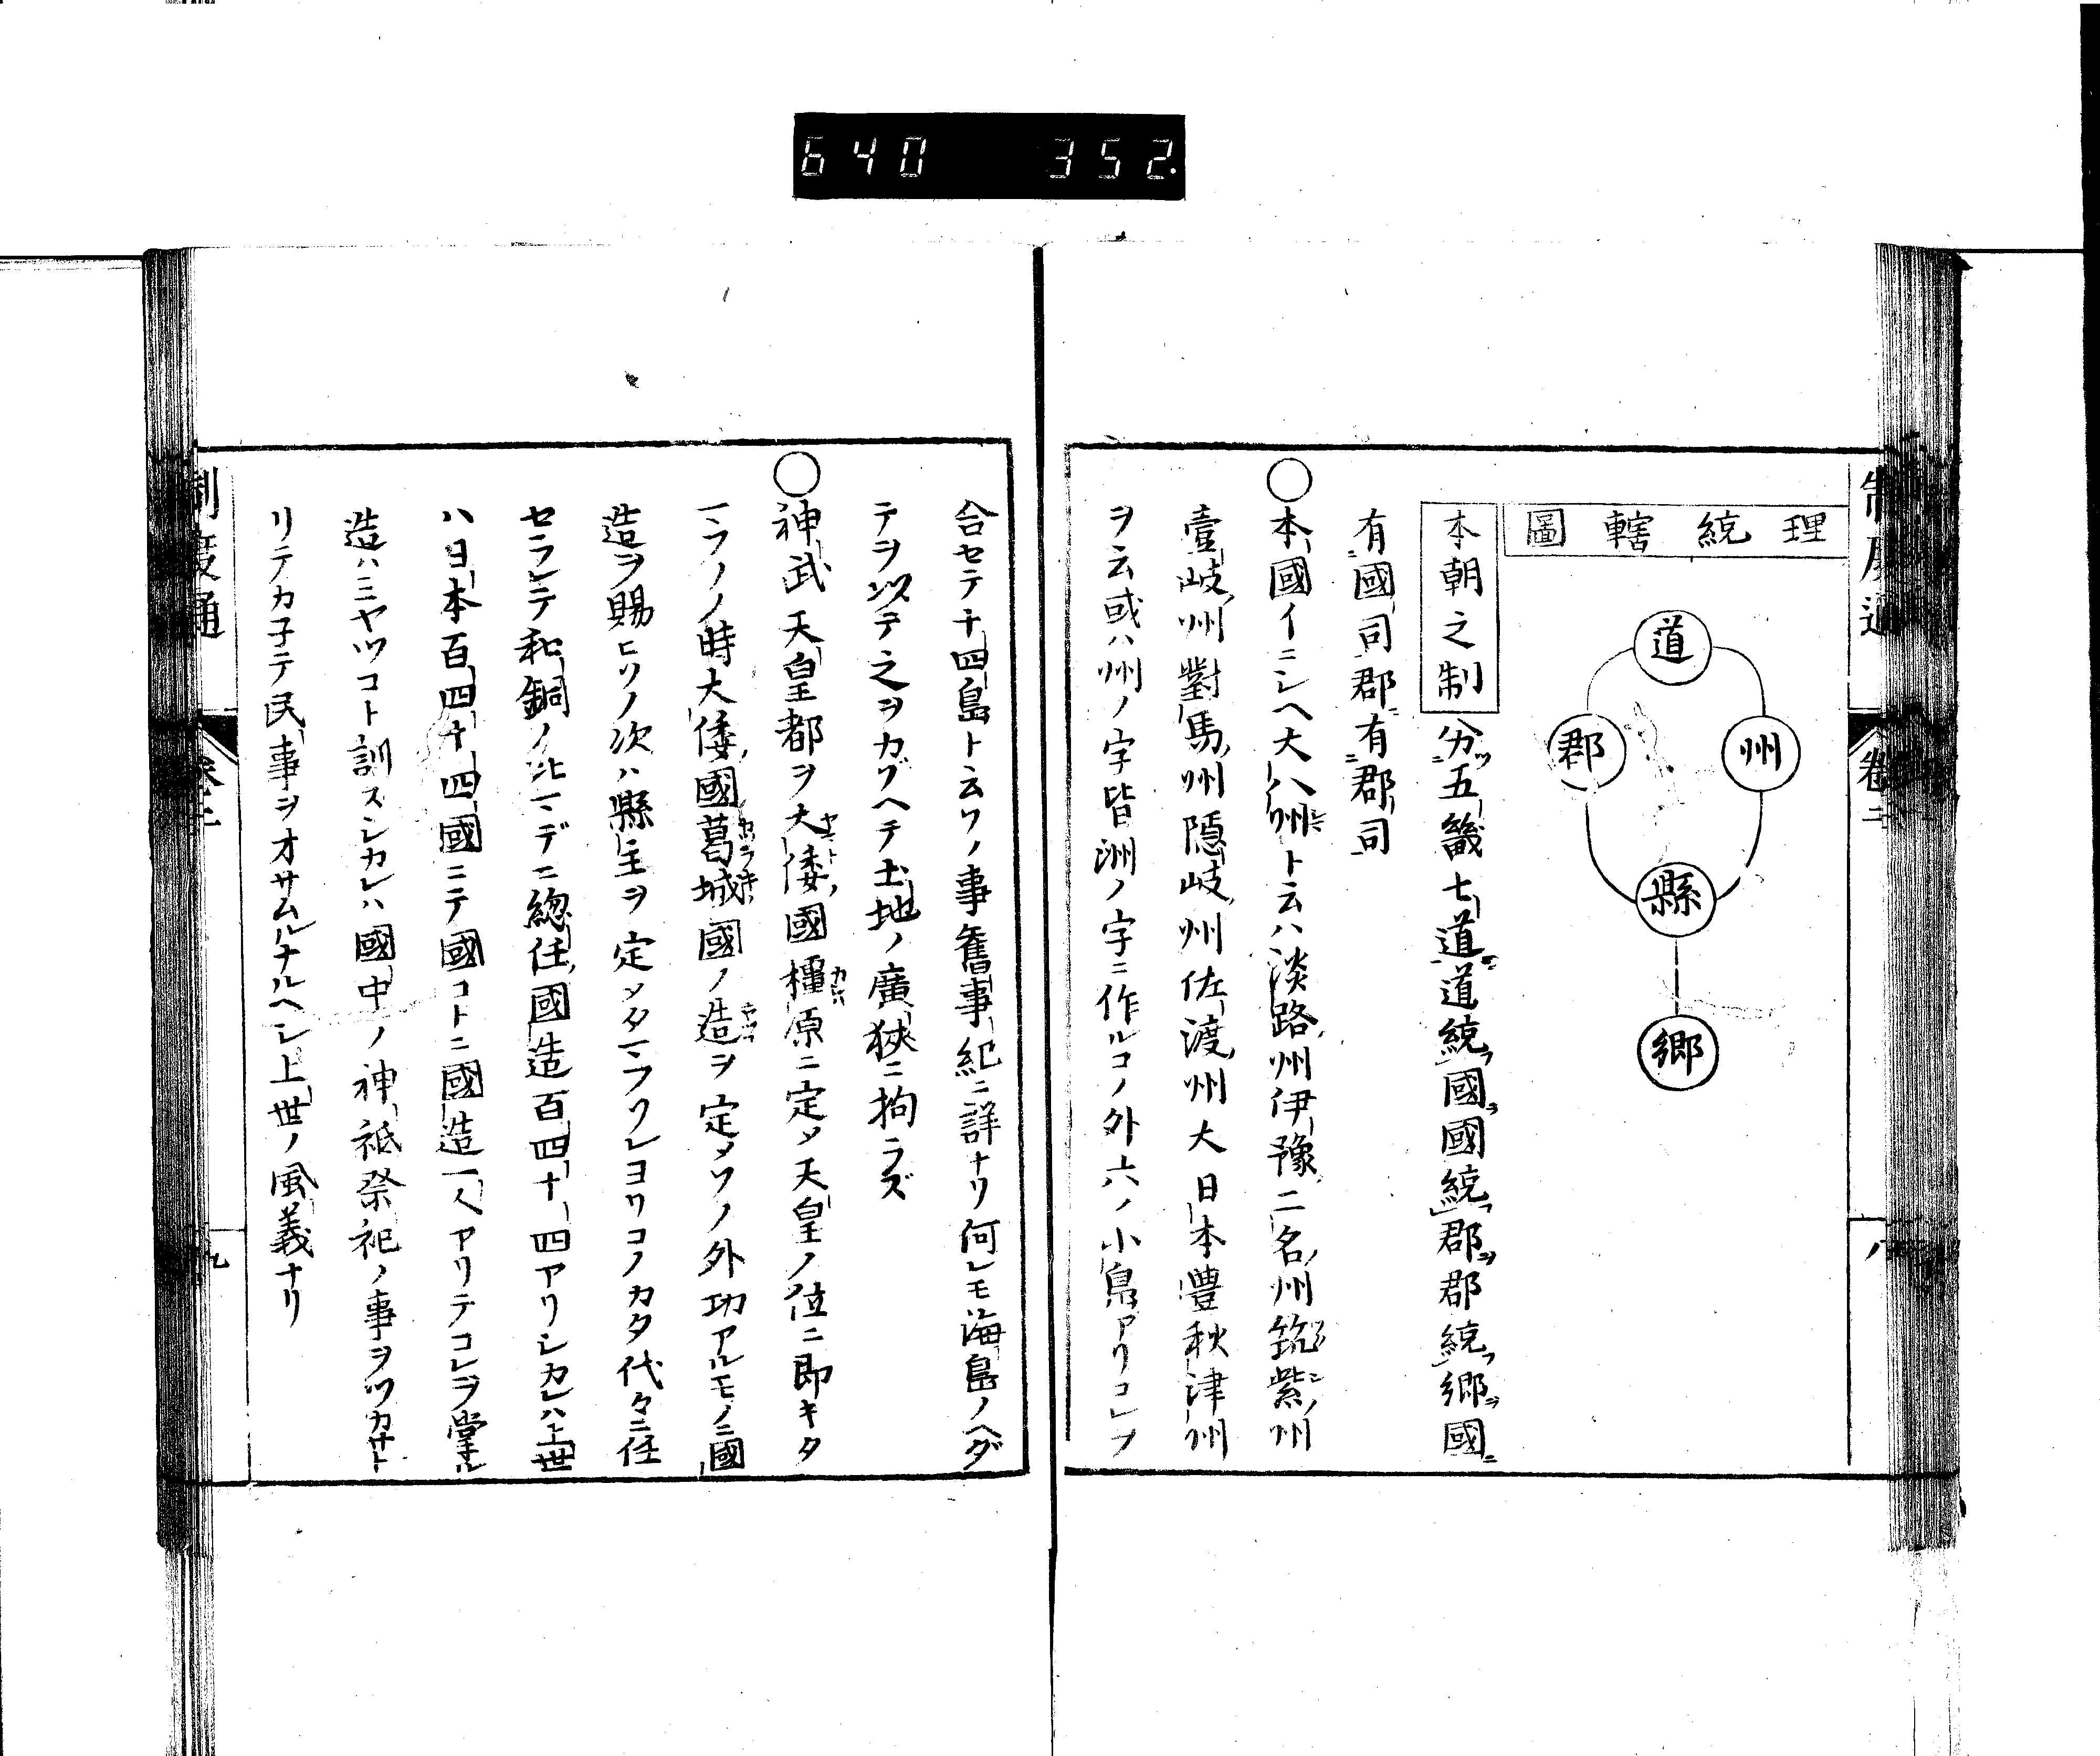 640 352.
制度通
卷二
八
理統轄圖
道
州
郡
縣
鄉
本朝之制 分五畿七道道統國國統郡郡統鄉國
有國司郡有郡司
○本國イニシヘ大八州ト云ハ淡路州伊豫二名州筑紫州
壹岐州對馬州隱岐州佐渡州大日本豐秋津州
ヲ云或ハ州ノ字皆洲ノ字ニ作ルコノ外六ノ小島アリコレヲ
合セテ十四島ト云フノ事舊事紀ニ詳ナリ何レモ海島ノヘダ
テヲ以テ之ヲカゾヘテ土地ノ廣狹ニ拘ラズ
○神武天皇都ヲ大倭國橿原ニ定メ天皇ノ位ニ即キタ
マフノ時大倭國葛城國ノ造ヲ定メソノ外功アルモノニ國
造ヲ賜ヒソノ次ハ縣主ヲ定メタマフソレヨリコノカタ代々ニ任
セラレテ和銅ノ比マデニ總任國造百四十四アリシカレハ上世
ハ日本百四十四國ニテ國コトニ國造一人アリテコレヲ掌ル
造ハミヤツコト訓スシカレハ國中ノ神祗祭祀ノ事ヲツカサト
リテカ子テ民事ヲオサムルナルヘシ上世ノ風義ナリ
制度通
卷二
九